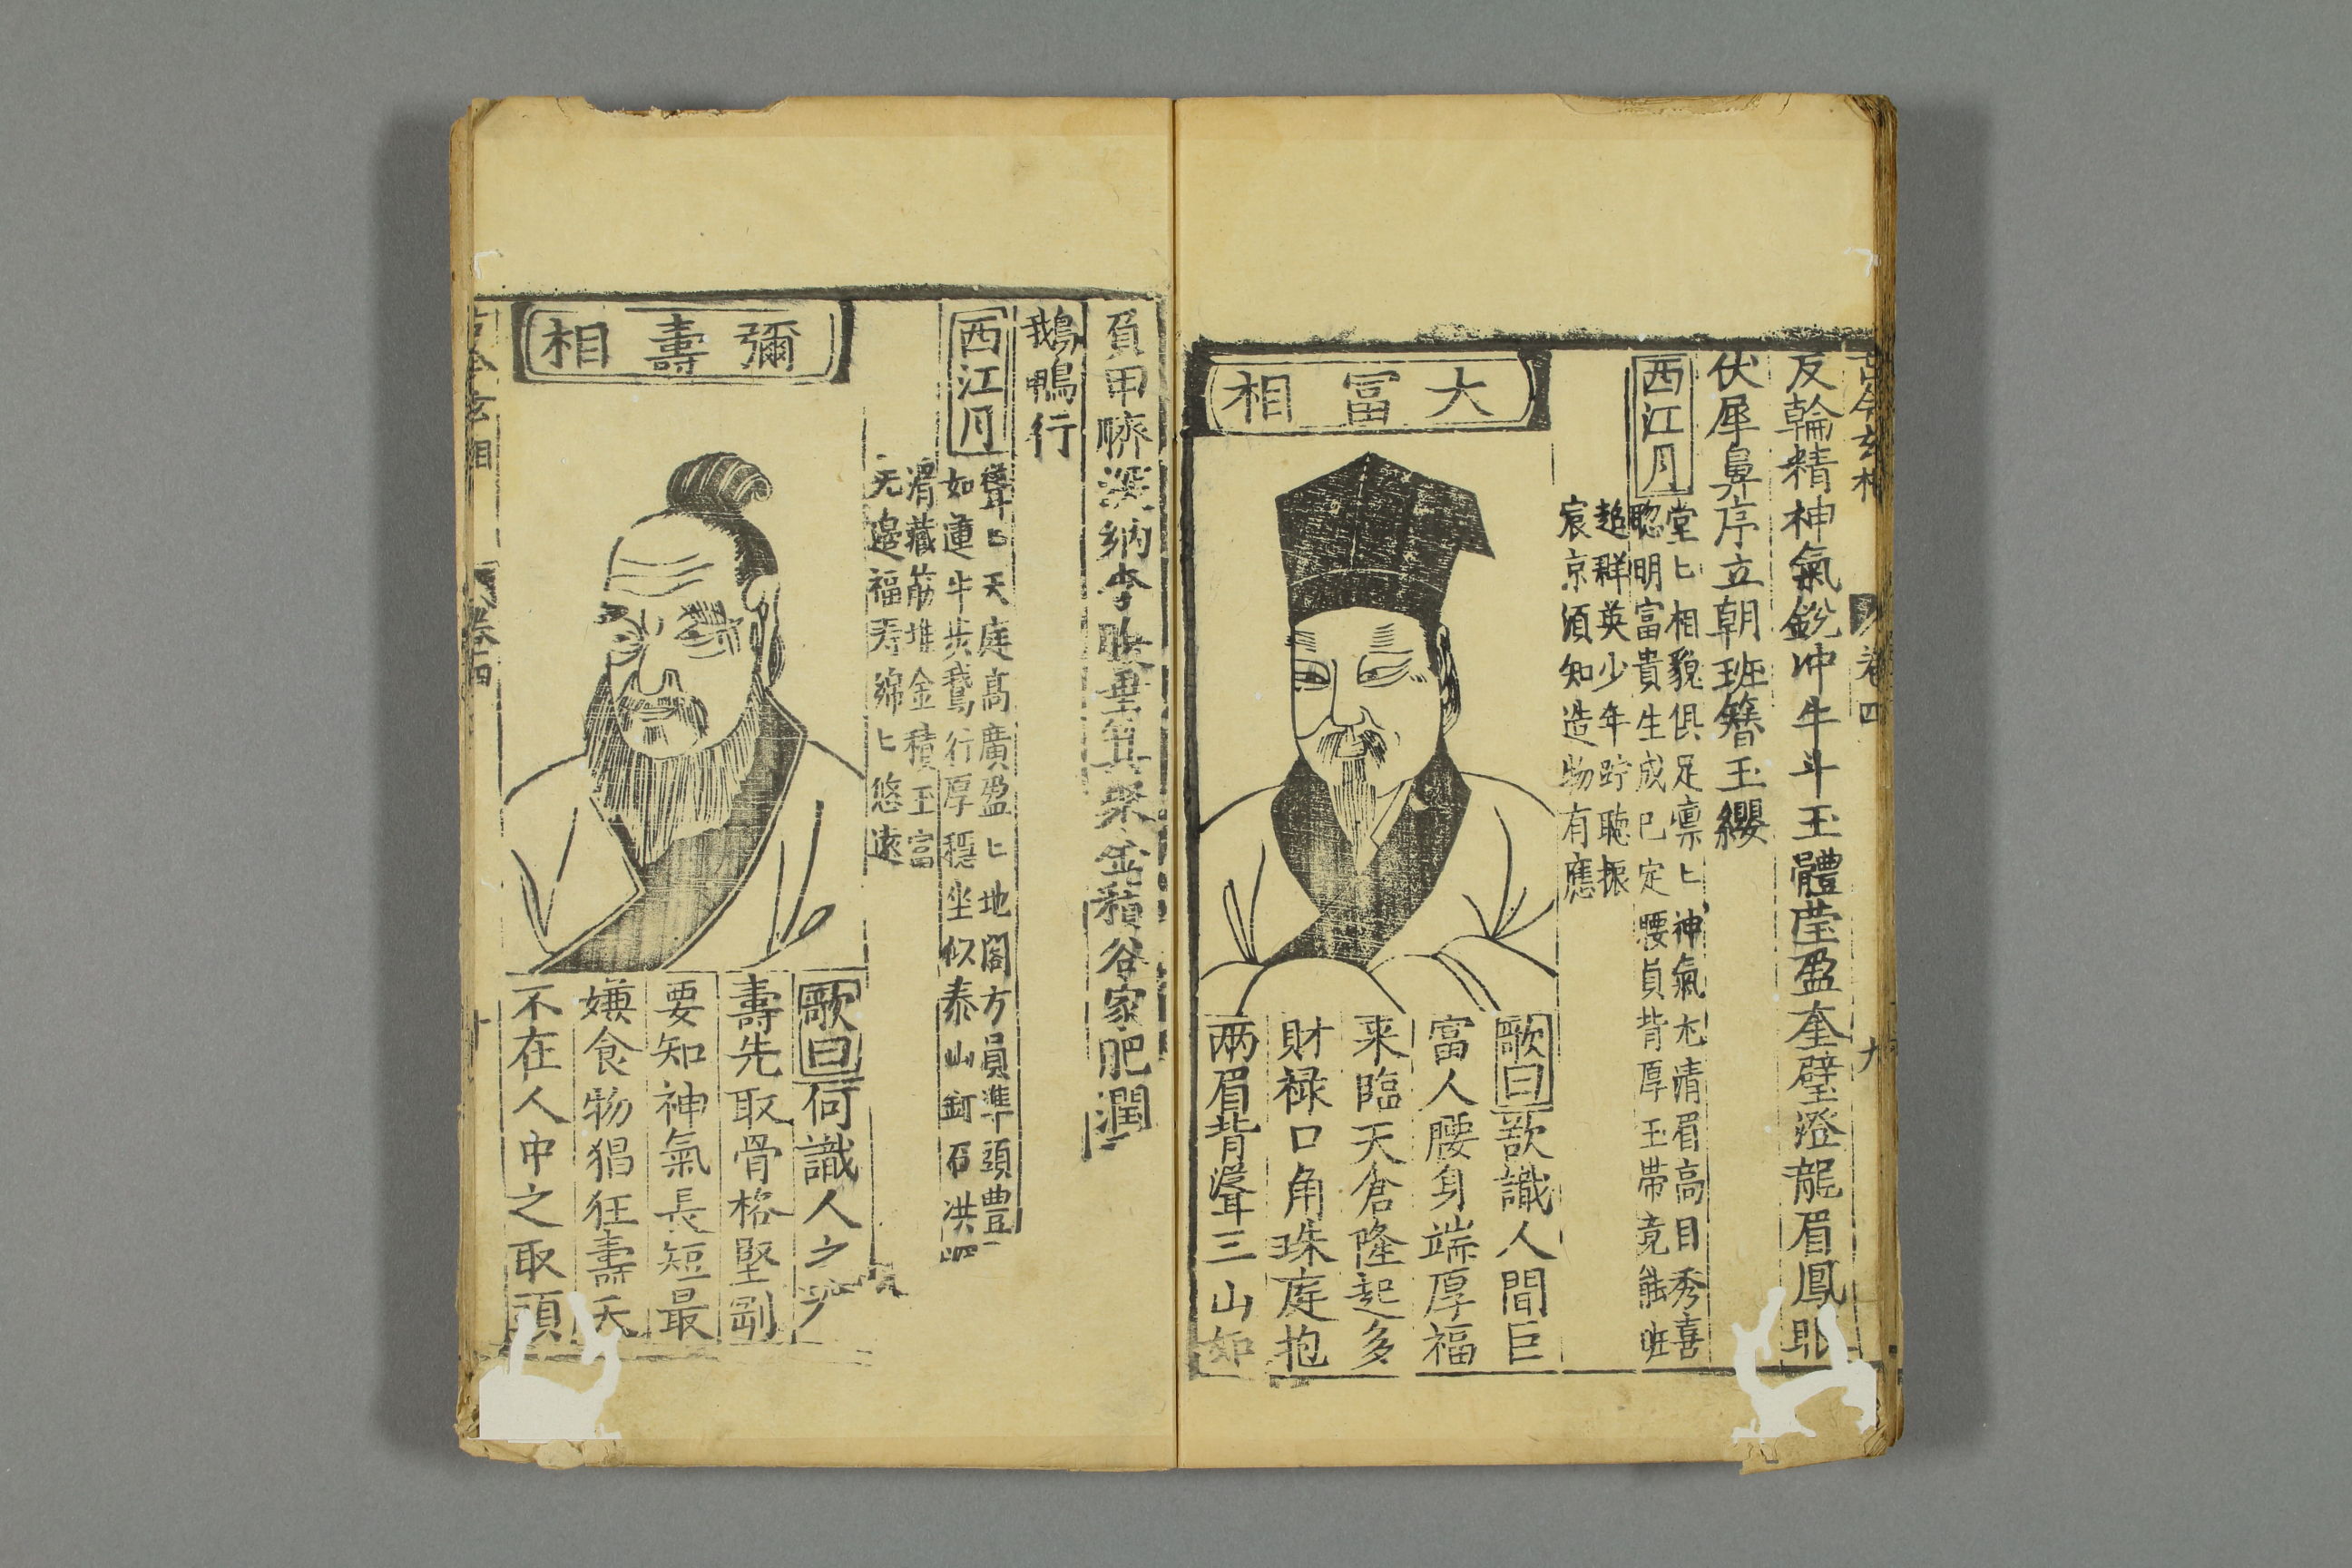 古今玄相
卷四
九
反輪精神氣銳冲牛斗玉體瑩盈奎璧澄龍眉鳳眼
伏犀鼻序立朝班簪玉纓
西江月
堂〻相貌俱足凛〻神氣尤清眉高目秀喜
聡明富貴生成已定腰貞背厚玉帶竟能
超群英少年聴振
宸京須知造物有應
大冨相
歌曰欲識人間巨
富人腰身端厚福
来臨天倉隆起多
財禄口角珠庭抱
兩眉背聳三山如
負甲臍深納李金積谷家肥潤
鵝鴨行
西江月
聳〻天庭高廣盈〻地閣方員準頭豊
如運牛步鵞行厚穩坐似泰山石洪
渭藏筋堆金積玉富
无邉福寿綿〻悠遠
彌壽相
歌曰何識人之
壽先取骨格堅剛
要知神氣長短最
嫌食物猖狂壽夭
不在人中之取頭
古今玄相
卷四
十